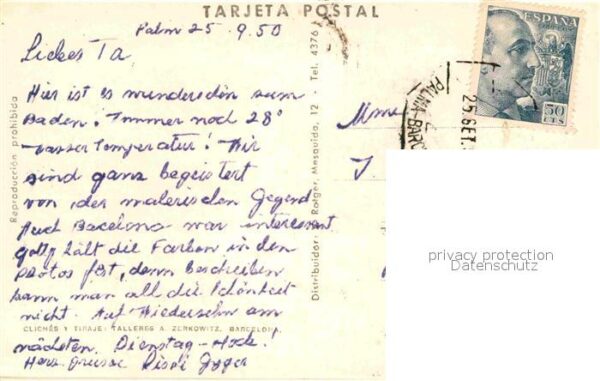 TARJETA POSTAL
Palma 25.9.50
Liebes Ta
Hier ist es wunderschön zum
Baden! Immer noch 28°
Wasser Temperatur! Wir
sind ganz begeistert
von der malerischen Gegend
Auch Barcelona war interessant
hält die Farben in den
Photos fest, denn beschreiben
kann man all die Schönheit
nicht. Auf Wiedersehn am
CLICHÉS Y TIRAJE: TALLERES A. ZERKOWITZ, BARCELONA.
nächsten Dienstag - Hock!
Herz. Grüsse
Reproducción prohibida
Distribuidor: Rotger, Mesquida, 12 - Tel. 4376
Mme
ESPAÑA
50
CTS
PALMA-BARC
25 SET.
privacy protection
Datenschutz